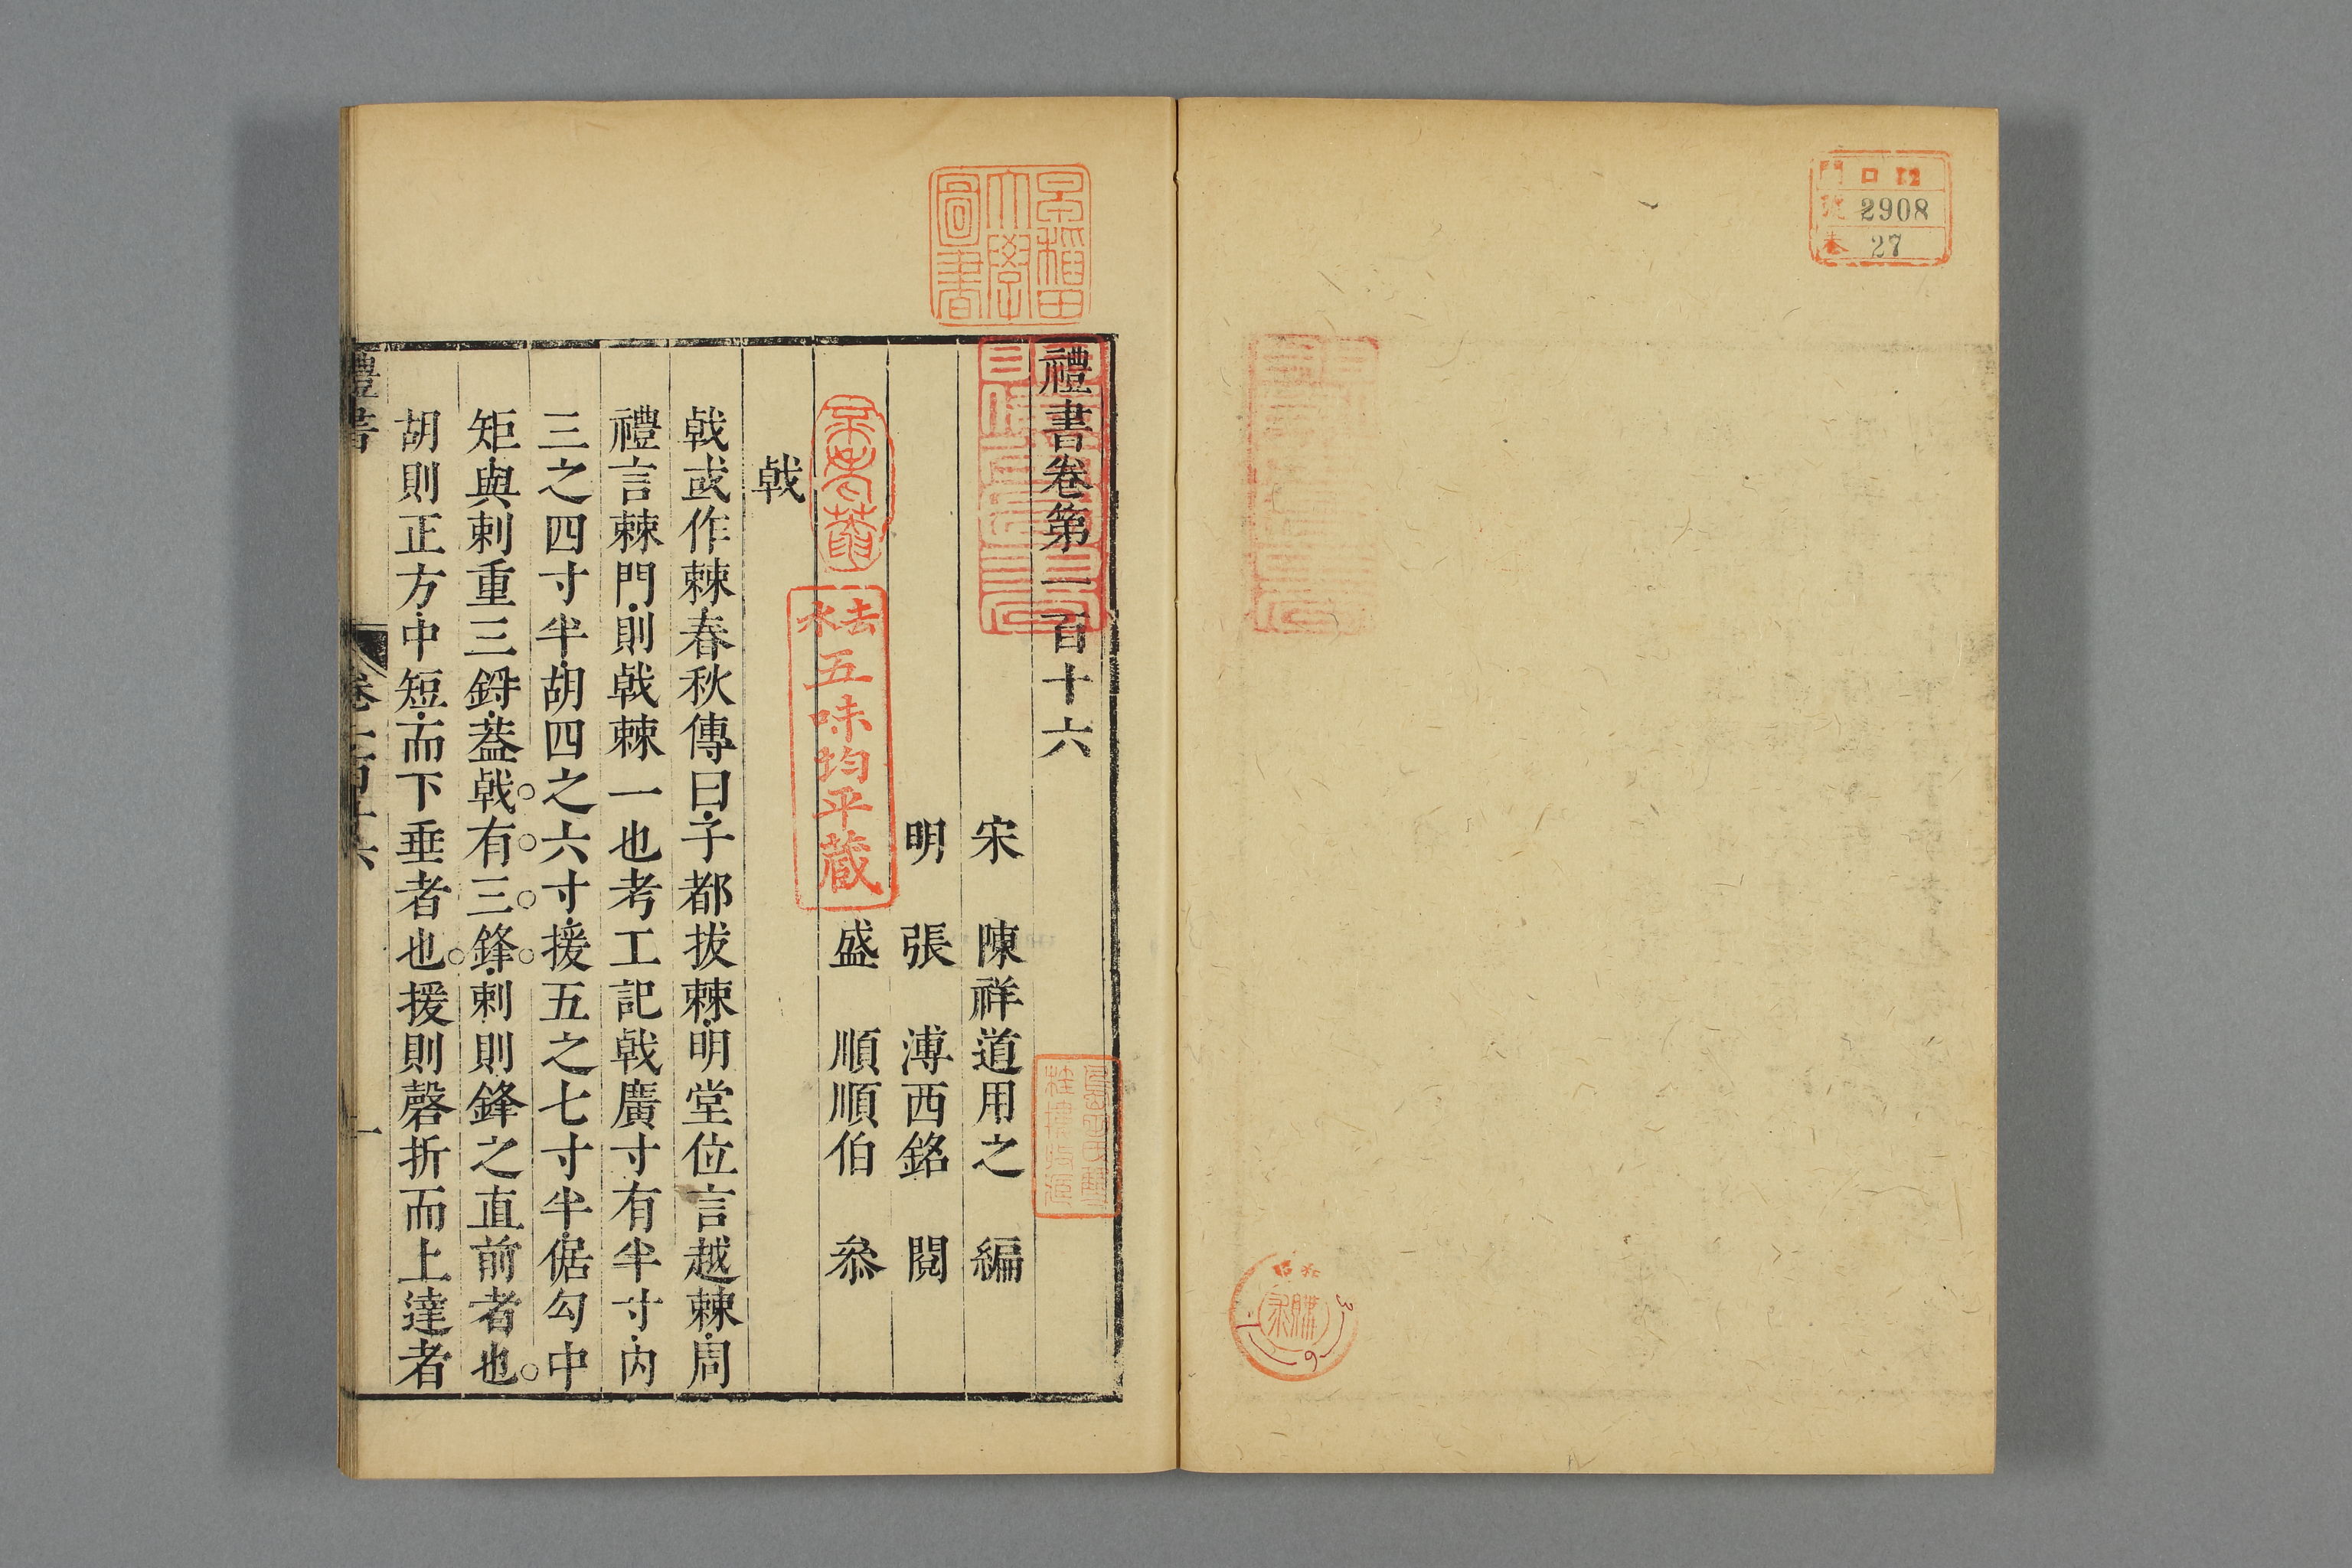 門 ロ 12
號 2908
巻 27
禮書卷第一百十六
宋 陳祥道用之 編
明 張 溥西銘 閱
盛 順順伯 叅
戟
戟或作棘春秋傳曰子都拔棘明堂位言越棘周
禮言棘門則戟棘一也考工記戟廣寸有半寸內
三之四寸半胡四之六寸援五之七寸半倨勾中
矩與刺重三鋝葢戟有三鋒刺則鋒之直前者也
胡則正方中短而下垂者也援則磬折而上達者
禮書 卷一百十六 一
早稻田大學圖書
五味均平蔵
昭和 3 1 6 購求